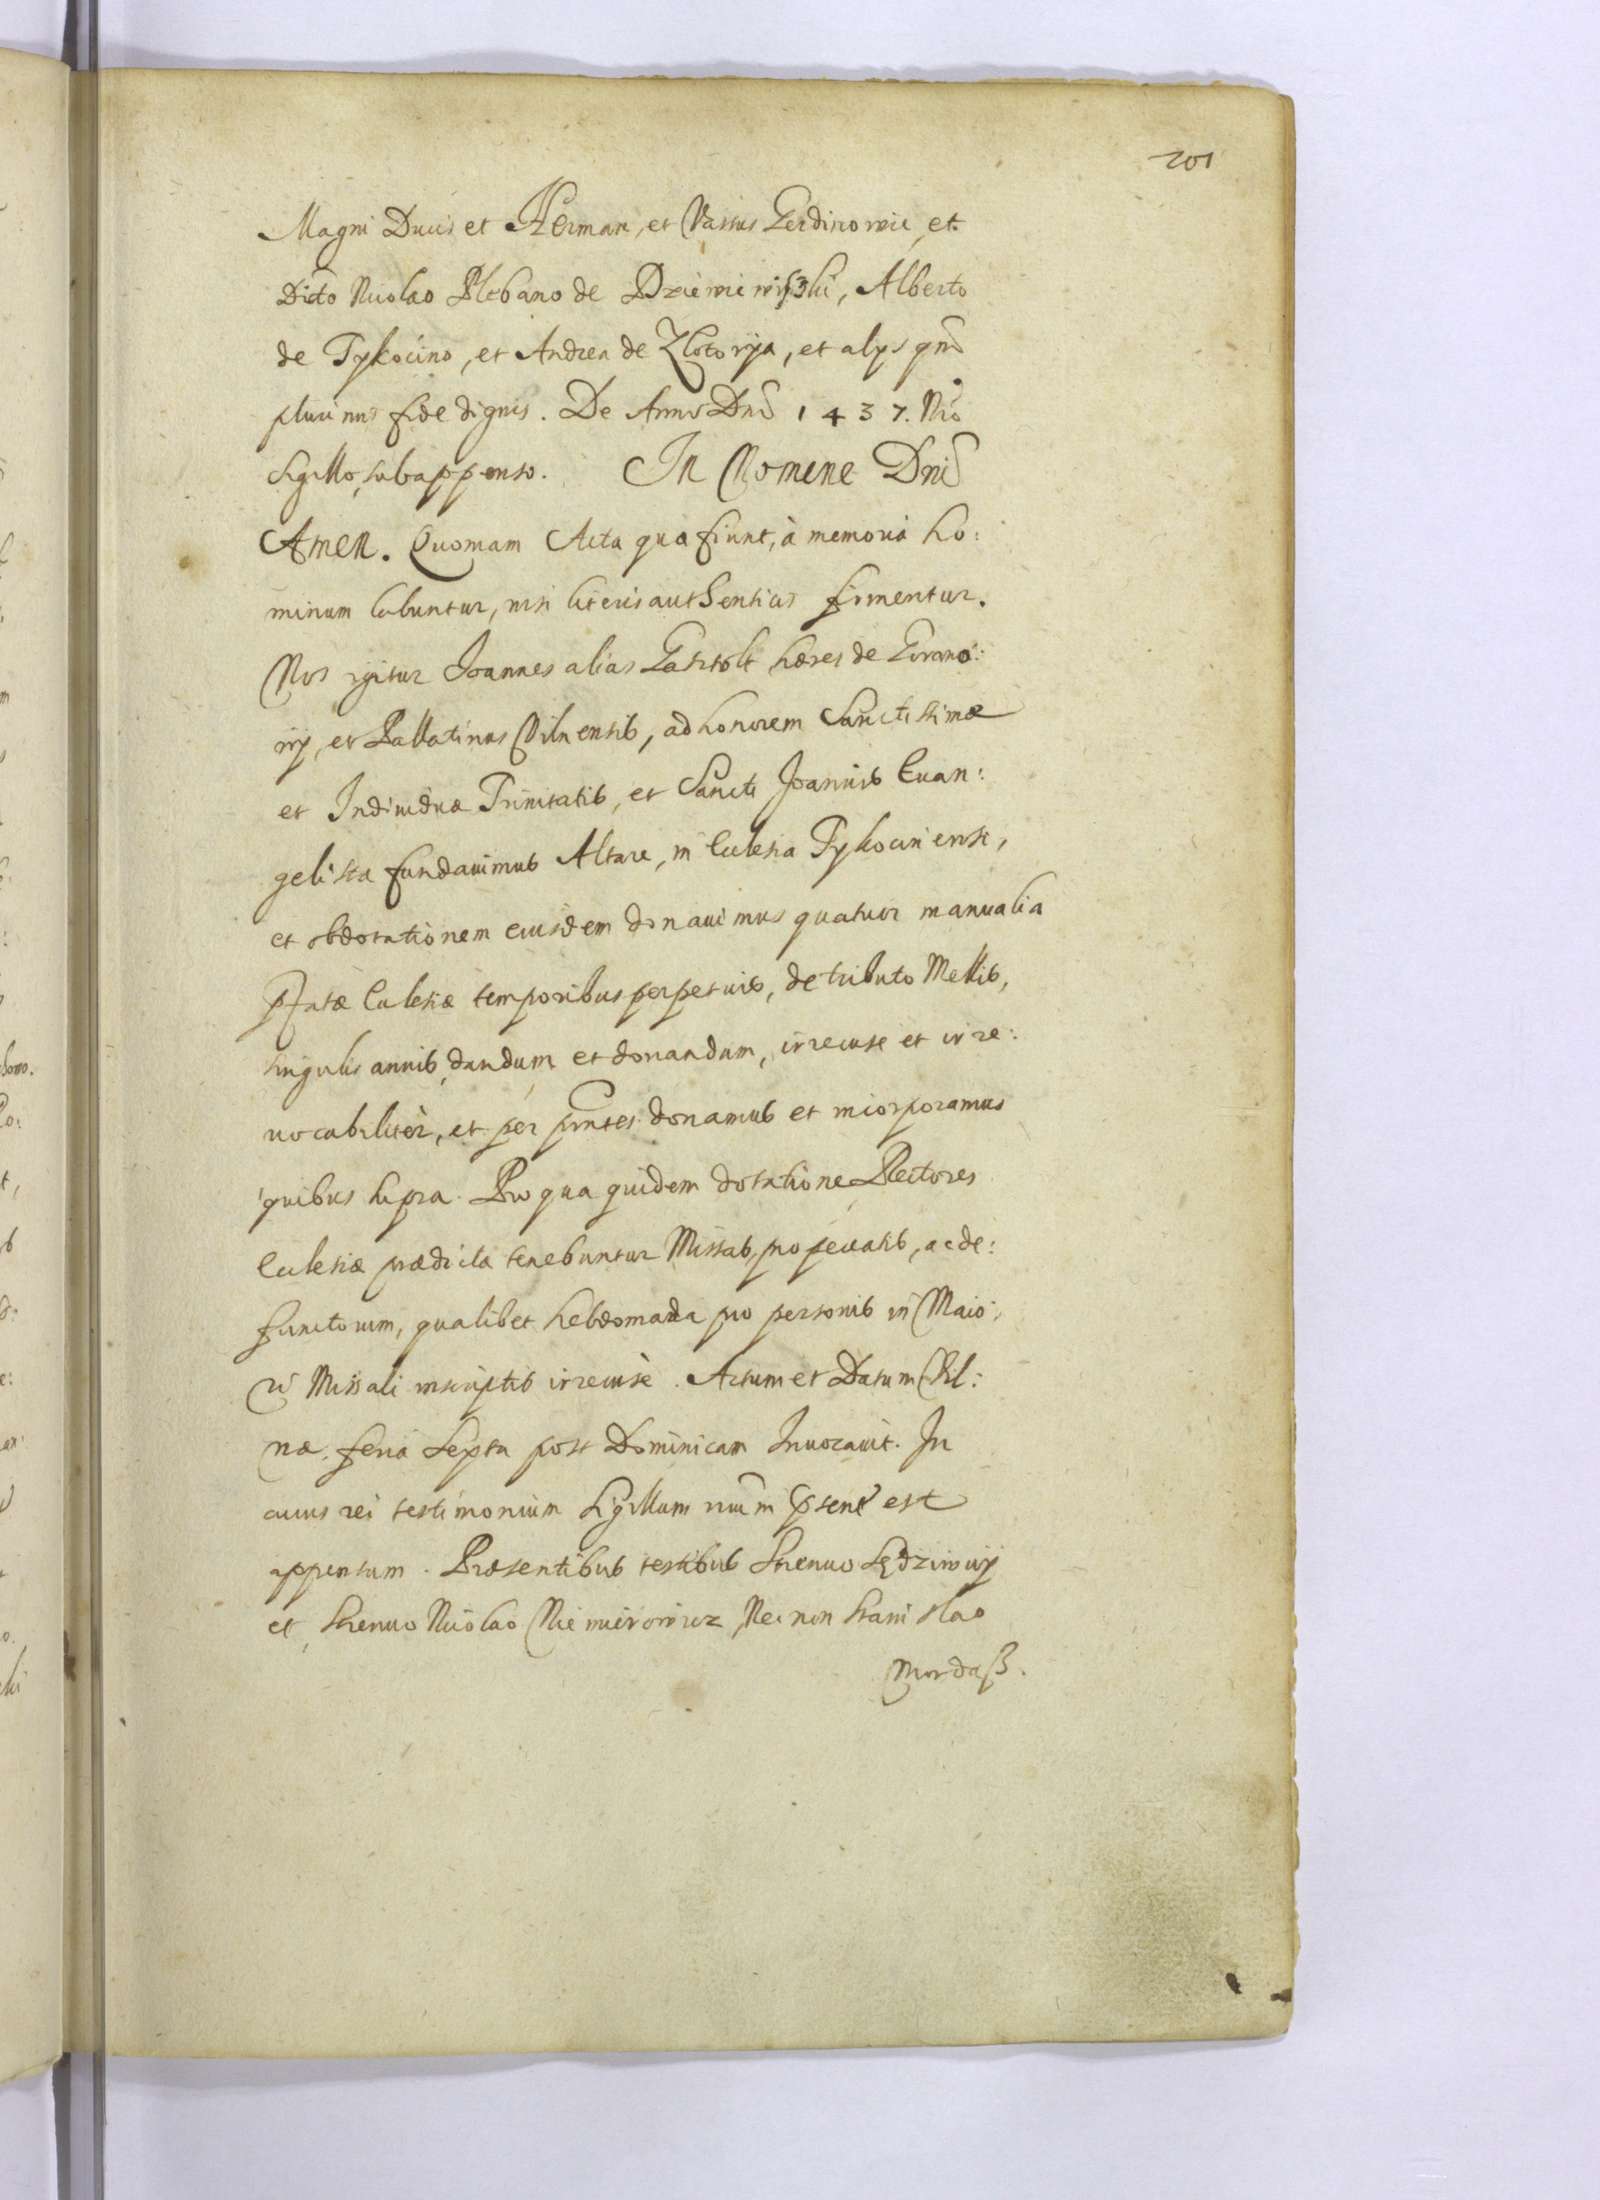 201
Magni Ducis et Herman, et Nassus Gerdinowic, et
Dicto Nicolao Plebano de Dziewieniszki, Alberto
de Tykocino, et Andrea de Zlotoryja, et alys qm̃
plurimis fide dignis. De Anno Dnĩ 1437. Nrõ
Sigillo subappenso. In Nomine Dnĩ
Amen. Quoniam Acta quæ fiunt, à memoriâ ho:
minum labuntur, nisi literis authenticis firmentur.
Nos igitur Joannes alias Gastolt hæres de Gerano:
iny, et Pallatinus Vilnensis, ad honorem Sanctissimæ
et Individuæ Trinitatis, et Sancti Joannis Euan:
gelistæ fundauimus Altare, in Ecclesia Tykociniensi,
et obdotationem eiusdem donauimus quatuor manualia
Pfatæ Ecclesiæ temporibus perpetuis, de tributo Mellis,
singulis annis, dandum et donandum, irrecuse et irre:
uocabiliter, et per pñtes donamus et incorporamus
quibus supra. Pro qua quidem dotatione Rectores
Ecclesiæ prædictæ tenebuntur Missas, pro peccatis, ac de:
functorum, qualibet hebdomada pro personis in Maio:
ri Missali inscriptis irrecusè. Actum et Datum Vil:
næ, feriâ Septa post Dominicam Inuocauit. In
cuius rei testimonium Sigillum nr̃um pseñt est
appensum. Præsentibus testibus Strenuo Sędziwuy
et Strenuo Nicolao Niemirowicz Nec non Stanislao
Mordaß.